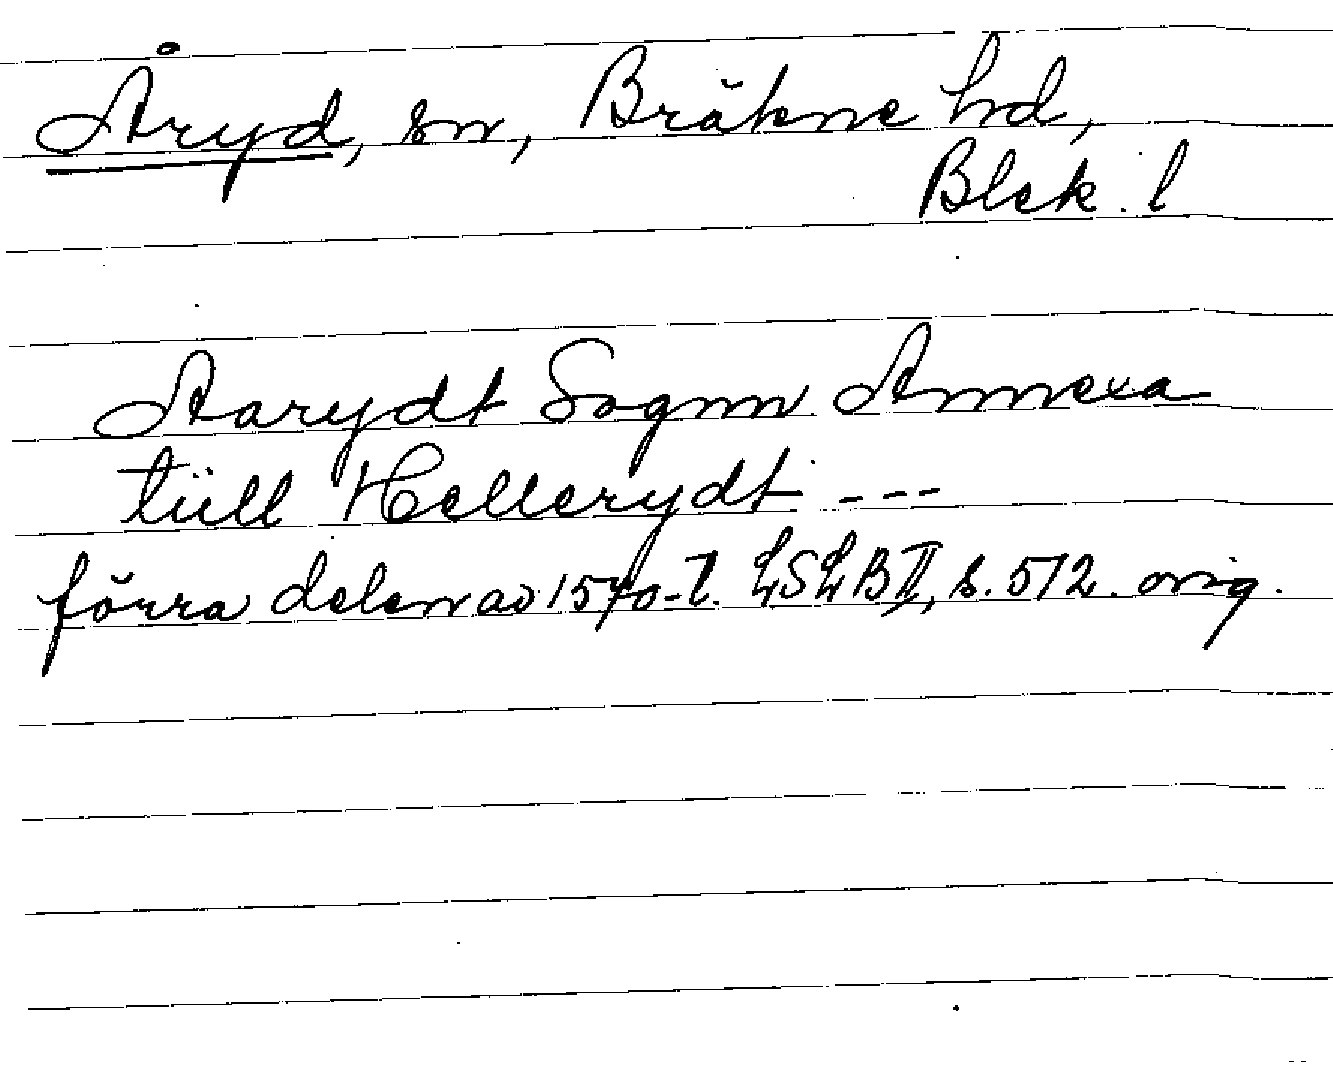 Åryd, sn, Bräkne hd,
Blek. l
Aarydt Sognn Annexa
tüll Hellerydt ---
förra delen av 1570-t. LSLB II, s. 512. orig.